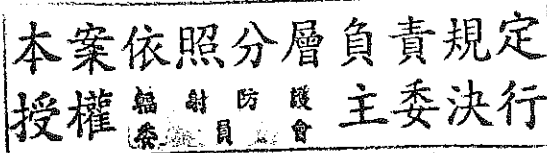 本案依照分層負責規定
授權輻射防護委員會主委決行